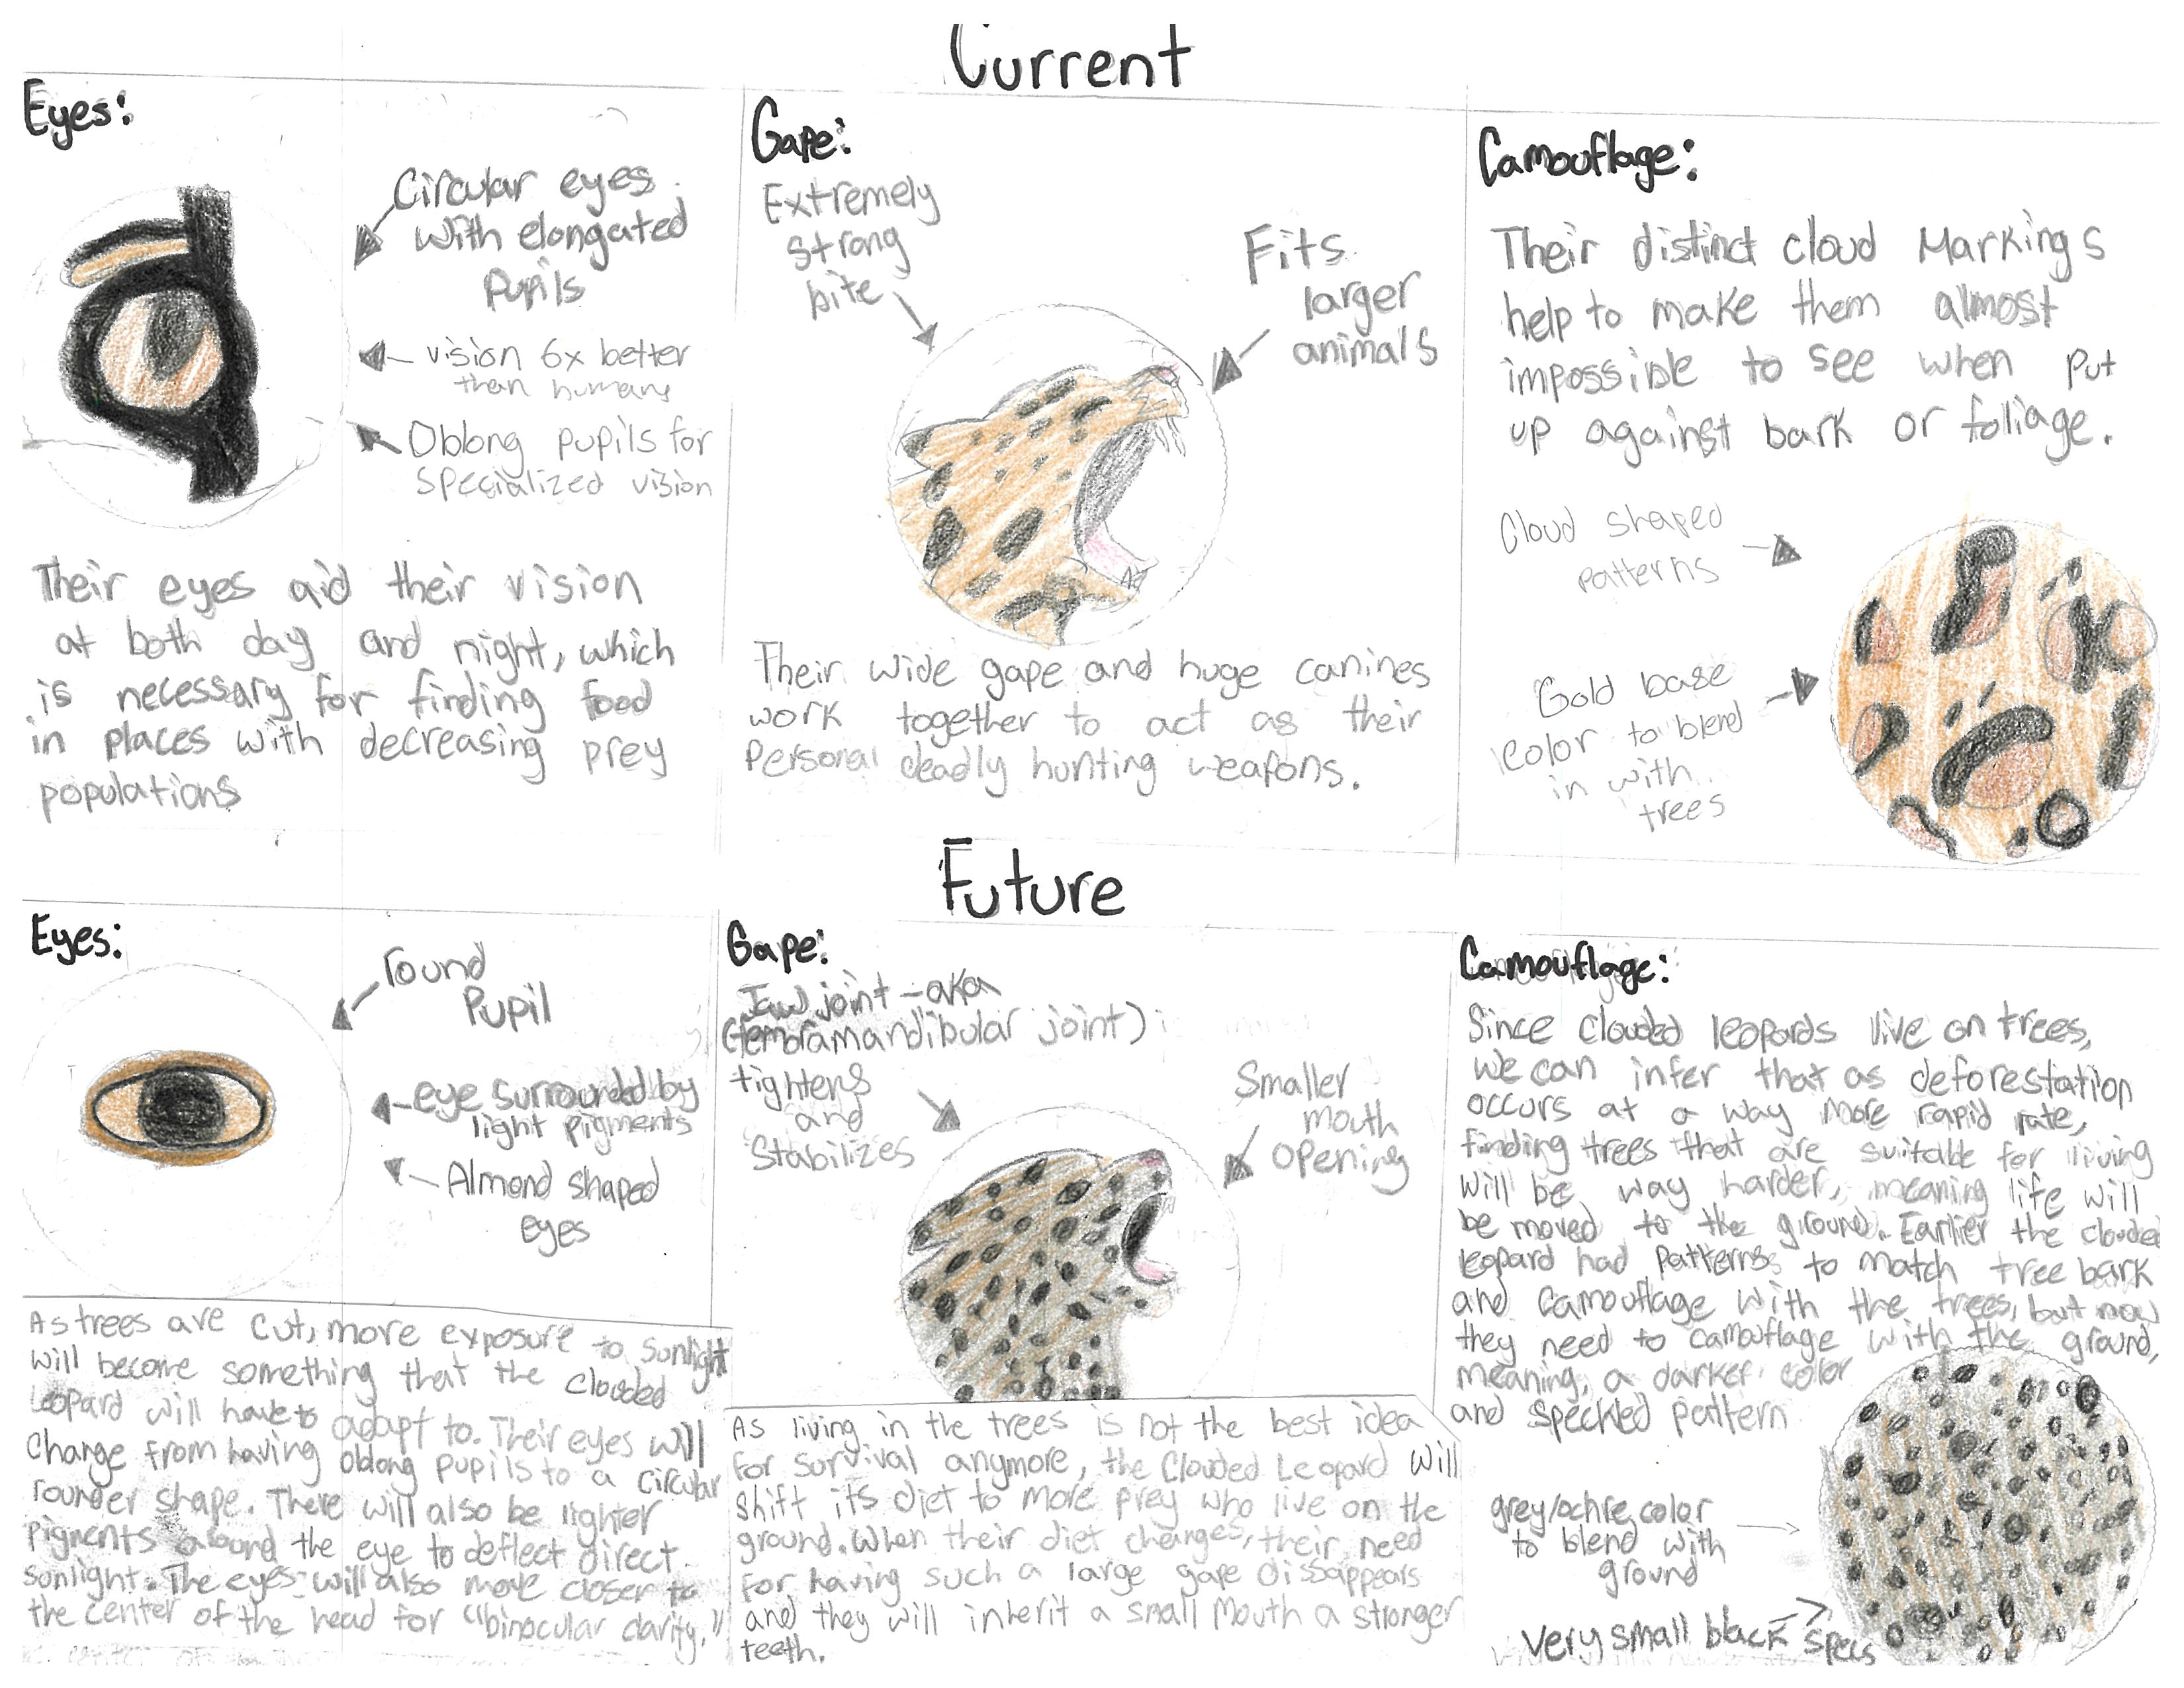 Current
Eyes:
Circular eyes
with elongated
Pupils
vision 6x better
than humans
Oblong pupils for
specialized vision
Their eyes aid their vision
at both day and night, which
is necessary for finding food
in places with decreasing prey
populations
Gape:
Extremely
strong
bite
Fits
larger
animals
Their wide gape and huge canines
work together to act as their
Personal deadly hunting weapons.
Camouflage:
Their distinct cloud Markings
help to make them almost
impossible to see when put
up against bark or foliage.
Cloud shaped
patterns
Gold base
color to blend
in with
trees
Future
Eyes:
round
Pupil
eye surrounded by
light pigments
Almond shaped
eyes
As trees are cut, more exposure to sunlight
will become something that the clouded
leopard will have to adapt to. Their eyes will
change from having oblong pupils to a circular
rounder shape. There will also be lighter
pigments around the eye to deflect direct
sunlight. The eyes will also move closer to
the center of the head for "binocular clarity."
Gape:
Jaw joint - aka
(temboramandibular joint)
tightens
and
Stabilizes
Smaller
mouth
opening
As living in the trees is not the best idea
for survival anymore, the Clouded Leopard will
shift its diet to more prey who live on the
ground. When their diet changes, their need
for having such a large gape dissappears
and they will inherit a small mouth a stronger
teeth.
Camouflage:
Since clouded leopards live on trees,
we can infer that as deforestation
occurs at a way more rapid rate,
finding trees that are suitable for living
will be way harder, meaning life will
be moved to the ground. Earlier the clouded
leopard had patterns to match tree bark
and camouflage with the trees, but now
they need to camouflage with the ground,
meaning, a darker color
and speckled pattern
grey/ochre color
to blend with
ground
very small black specs